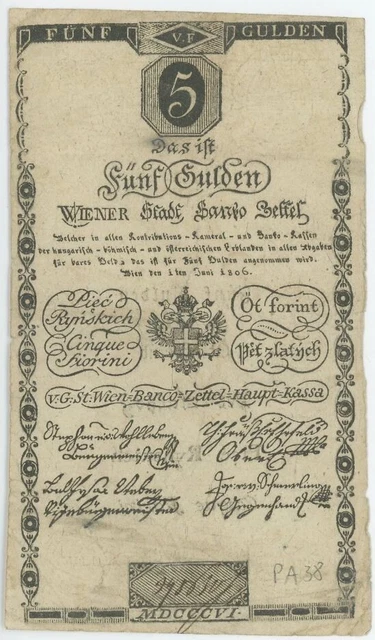 FÜNF V.F GULDEN
5
Das ist
Fünf Gulden
WIENER Stadt Banko Zettel
Welcher in allen Kontributions - Kameral - und Banko - Kassen
der hungarisch - böhmisch - und österreichischen Erblanden in allen Abgaben
für bares Geld, das ist für Fünf Gulden angenommen wird.
Wien den 1ten Juni 1806.
Pięć
Ryńskich
Öt forint
Cinque
Fiorini
Pět zlatých
V. G. St. Wien-Banco-Zettel-Haupt-Kassa
Bürgermeister
MDCCCVI.
PA 38